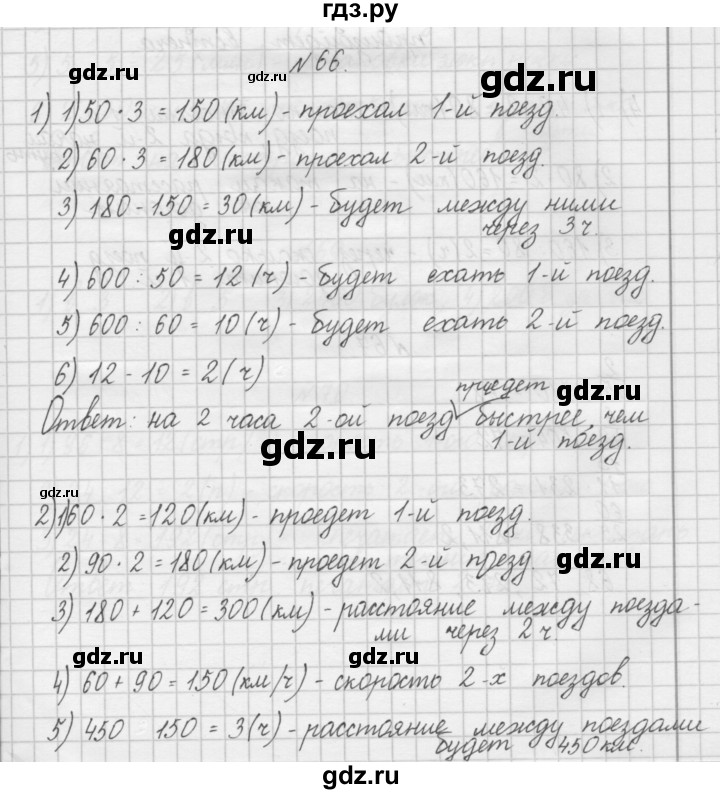 гдз.ру
gdz.ru gdz.ru № 66. gdz.ru
1) 1) 50 · 3 = 150 (км) - проехал 1-й поезд.
2) 60 · 3 = 180 (км) - проехал 2-й поезд.
3) 180 - 150 = 30 (км) - будет между ними
gdz.ru через 3 ч
gdz.ru
4) 600 : 50 = 12 (ч) - будет ехать 1-й поезд.
5) 600 : 60 = 10 (ч) - будет ехать 2-й поезд.
6) 12 - 10 = 2 (ч)
проедет gdz.ru
Ответ: на 2 часа 2-ой поезд быстрее, чем
gdz.ru 1-й поезд.
gdz.ru
2) 1) 60 · 2 = 120 (км) - проедет 1-й поезд.
2) 90 · 2 = 180 (км) - проедет 2-й поезд. gdz.ru
3) 180 + 120 = 300 (км) - расстояние между поезда-
ми через 2 ч
gdz.ru gdz.ru
4) 60 + 90 = 150 (км/ч) - скорость 2-х поездов.
5) 450 150 = 3 (ч) - расстояние между поездами
будет 450 км.
gdz.ru